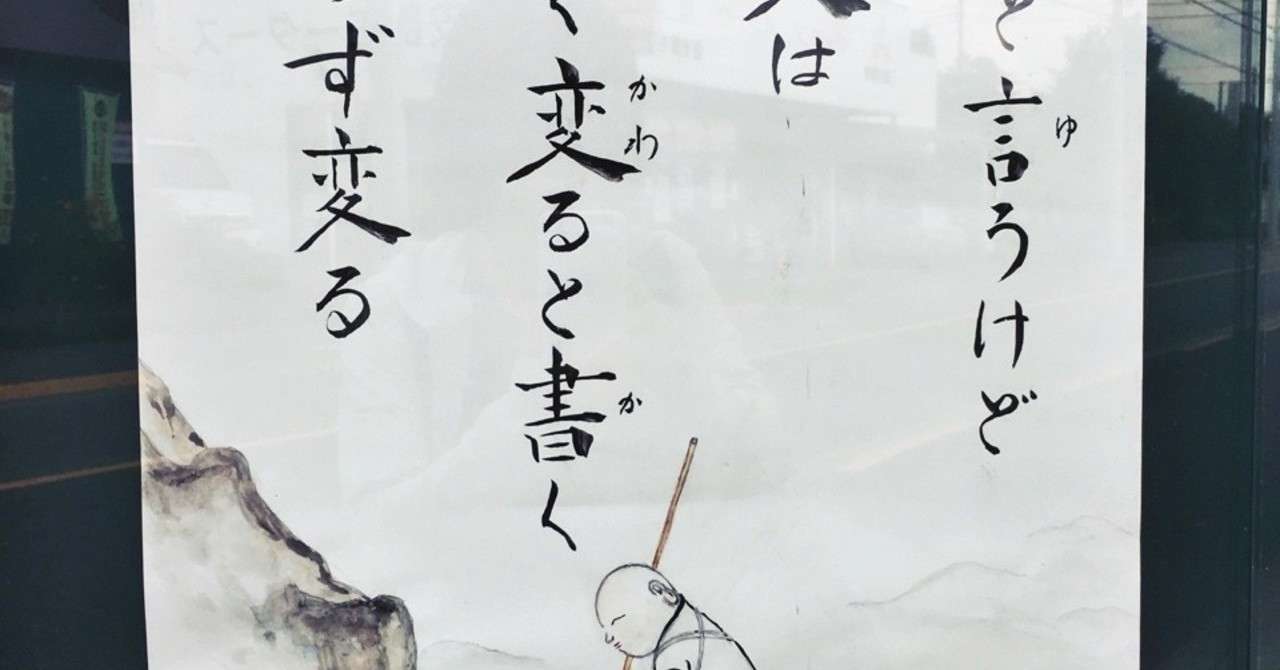 ゆ
と言うけど
は
かわ か
く変ると書く
ず変る